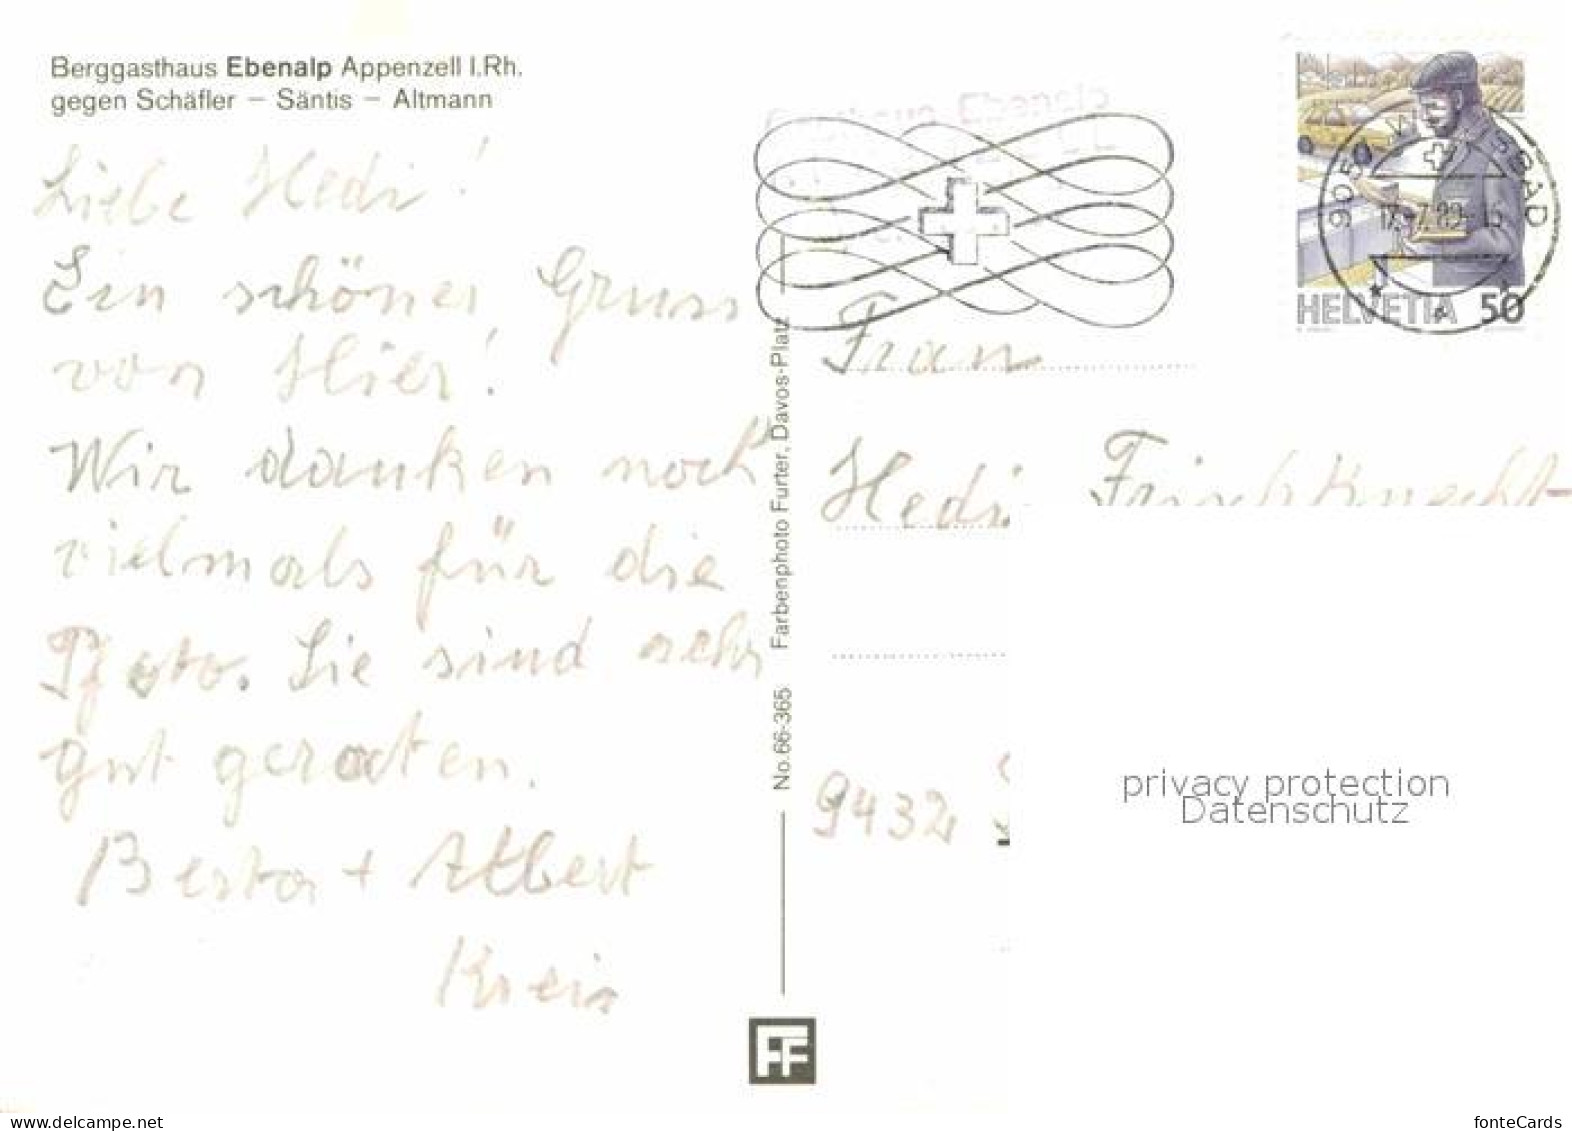 Berggasthaus Ebenalp Appenzell I.Rh.
gegen Schäfler – Säntis – Altmann
Liebe Hedi!
Ein schöner Gruss
von Hier!
Wir danken noch
vielmals für die
Pfoto. Sie sind sehr
gut geraten.
Berta + Albert
Kreis
No. 66-365 Farbenphoto Furter, Davos-Platz
FF
Ebenalp
HELVETIA 50
9050
BAD
17.-7.89-15
Frau
Hedi Frischknecht
9432
privacy protection
Datenschutz
delcampe.net
fonteCards